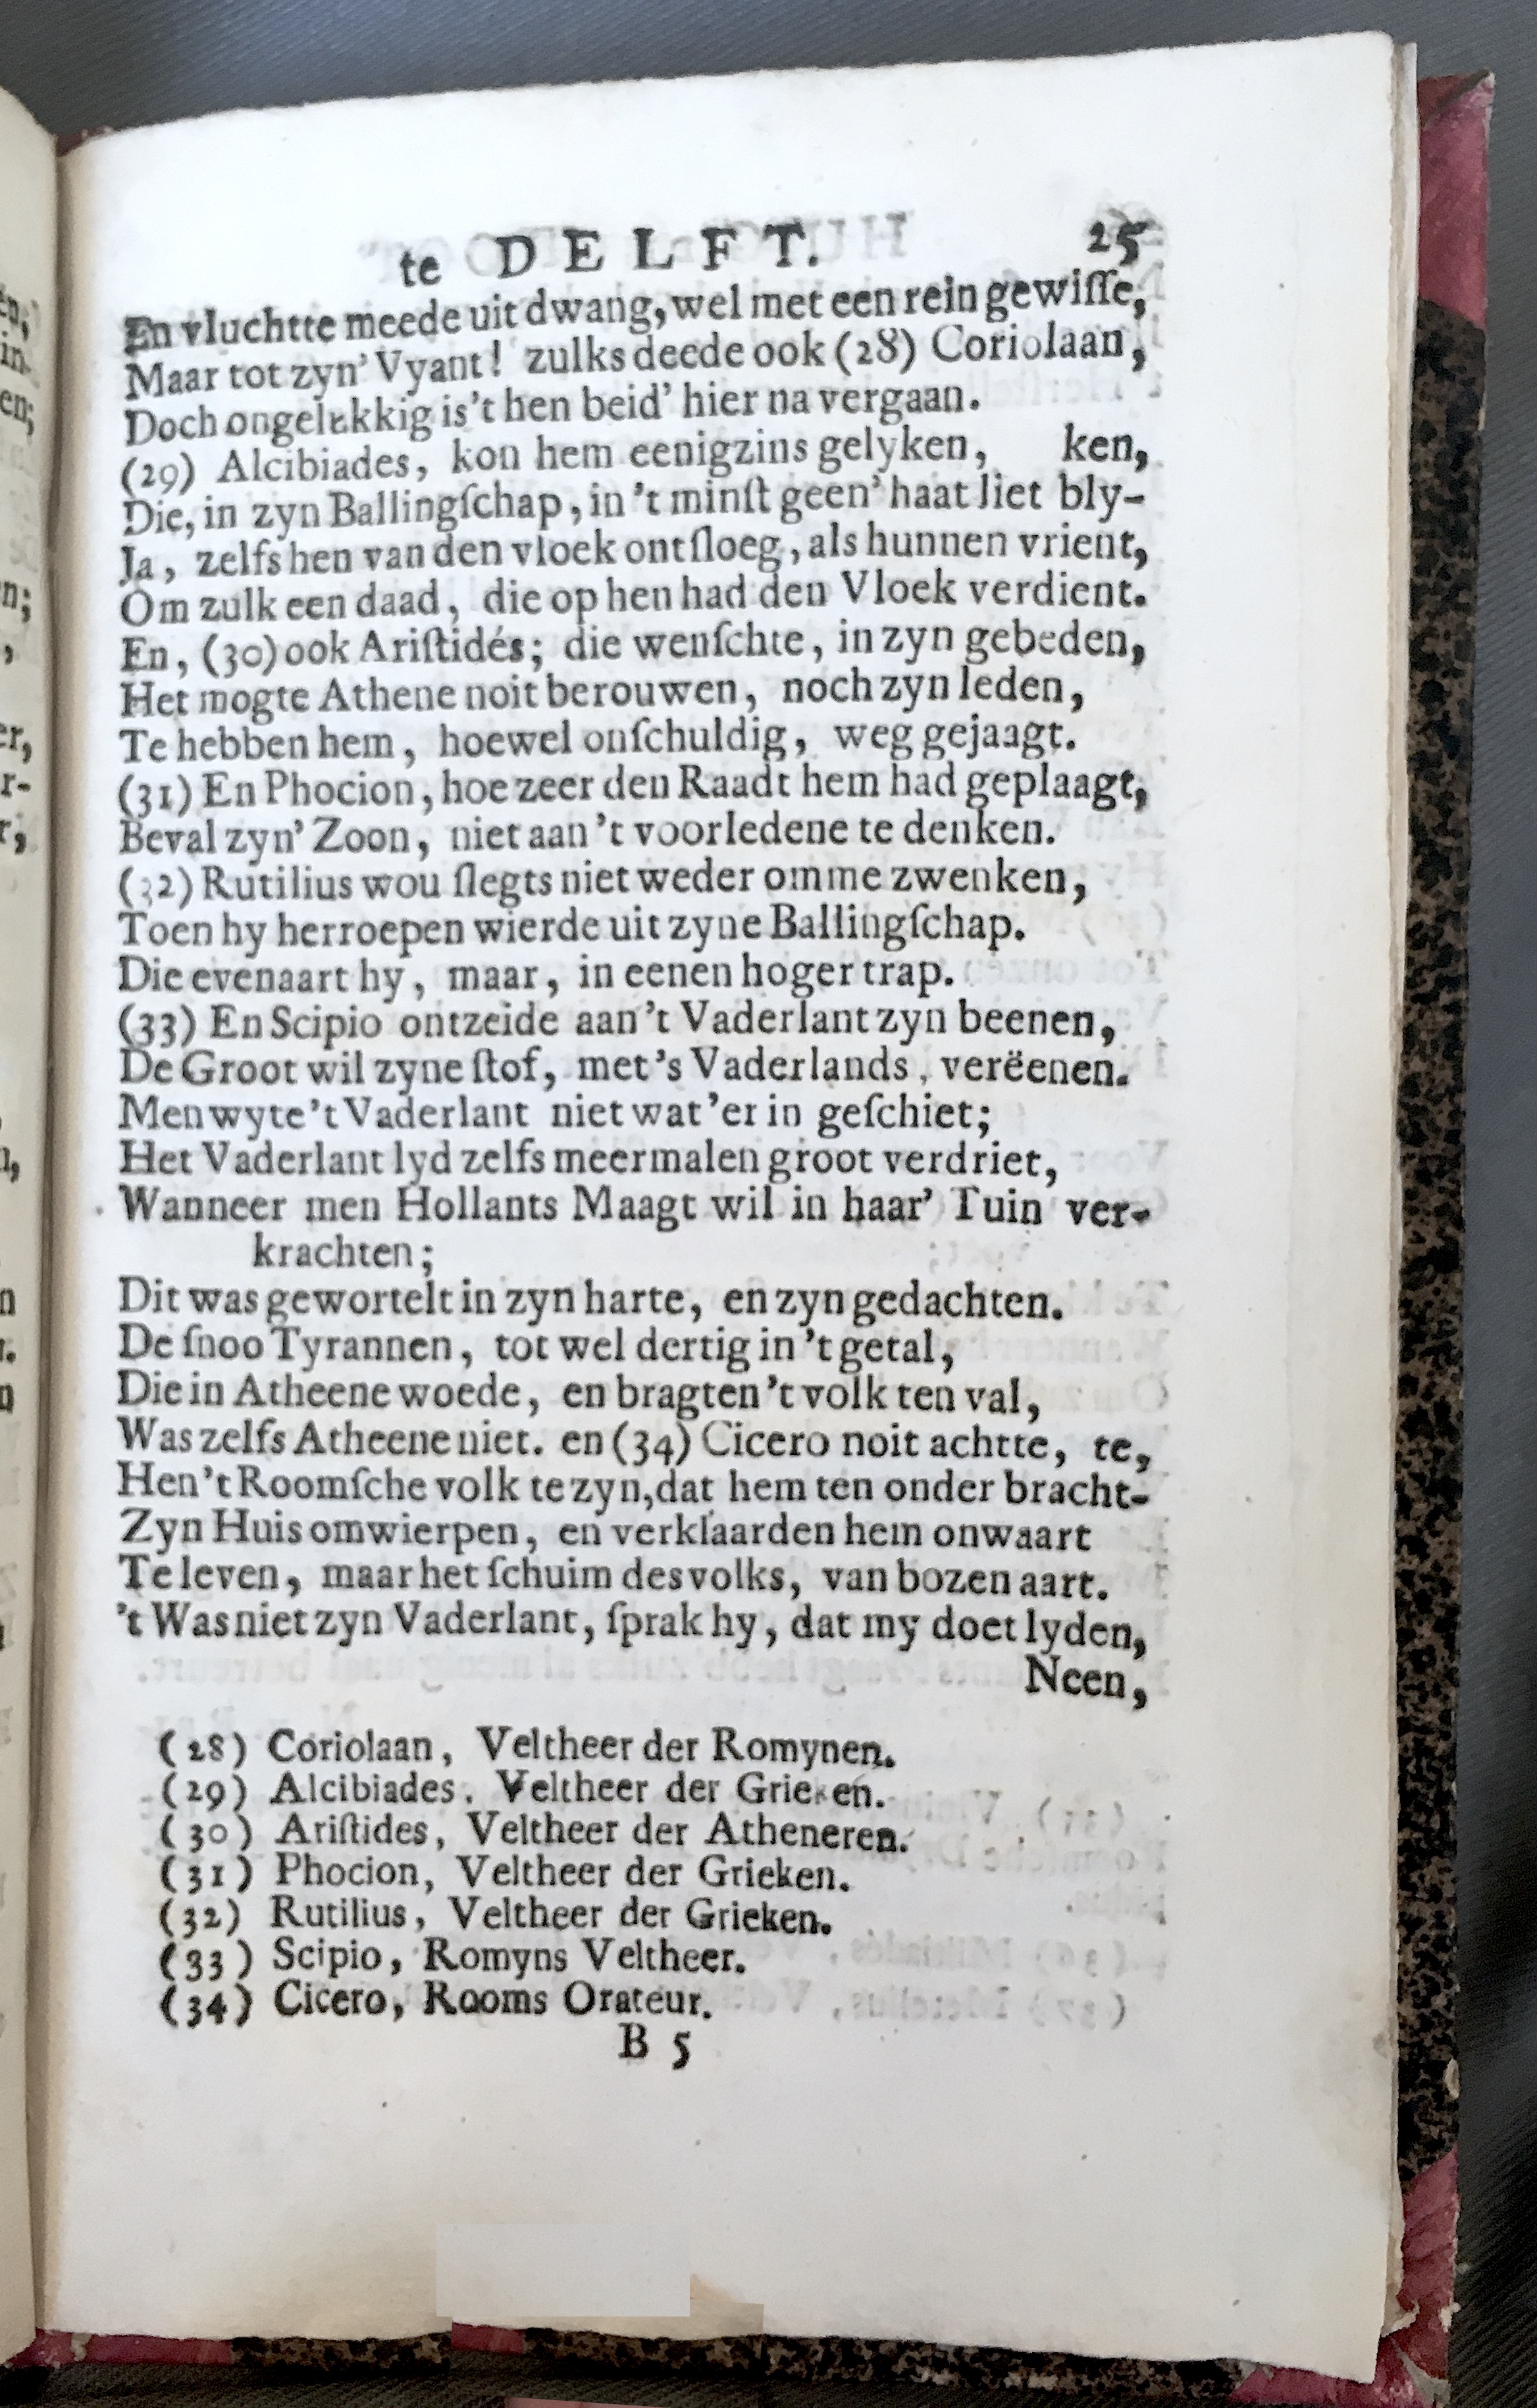 te DELFT. 25
En vluchtte meede uit dwang, wel met een rein gewiſſe,
Maar tot zyn' Vyant! zulks deede ook (28) Coriolaan,
Doch ongelukkig is 't hen beid' hier na vergaan.
(29) Alcibiades, kon hem eenigzins gelyken, ken,
Die, in zyn Ballingſchap, in 't minſt geen' haat liet bly-
Ja, zelfs hen van den vloek ontſloeg, als hunnen vrient,
Om zulk een daad, die op hen had den Vloek verdient.
En, (30) ook Ariſtidés; die wenſchte, in zyn gebeden,
Het mogte Athene noit berouwen, noch zyn leden,
Te hebben hem, hoewel onſchuldig, weg gejaagt.
(31) En Phocion, hoe zeer den Raadt hem had geplaagt,
Beval zyn' Zoon, niet aan 't voorledene te denken.
(32) Rutilius wou ſlegts niet weder omme zwenken,
Toen hy herroepen wierde uit zyne Ballingſchap.
Die evenaart hy, maar, in eenen hoger trap.
(33) En Scipio ontzeide aan 't Vaderlant zyn beenen,
De Groot wil zyne ſtof, met 's Vaderlands, verëenen.
Men wyte 't Vaderlant niet wat 'er in geſchiet;
Het Vaderlant lyd zelfs meermalen groot verdriet,
Wanneer men Hollants Maagt wil in haar' Tuin ver-
krachten;
Dit was gewortelt in zyn harte, en zyn gedachten.
De ſnoo Tyrannen, tot wel dertig in 't getal,
Die in Atheene woede, en bragten 't volk ten val,
Was zelfs Atheene niet. en (34) Cicero noit achtte, te,
Hen 't Roomſche volk te zyn, dat hem ten onder bracht-
Zyn Huis omwierpen, en verklaarden hem onwaart
Te leven, maar het ſchuim des volks, van bozen aart.
't Was niet zyn Vaderlant, ſprak hy, dat my doet lyden,
Neen,
(28) Coriolaan, Veltheer der Romynen.
(29) Alcibiades. Veltheer der Grieken.
(30) Ariſtides, Veltheer der Atheneren.
(31) Phocion, Veltheer der Grieken.
(32) Rutilius, Veltheer der Grieken.
(33) Scipio, Romyns Veltheer.
(34) Cicero, Rooms Orateur.
B 5